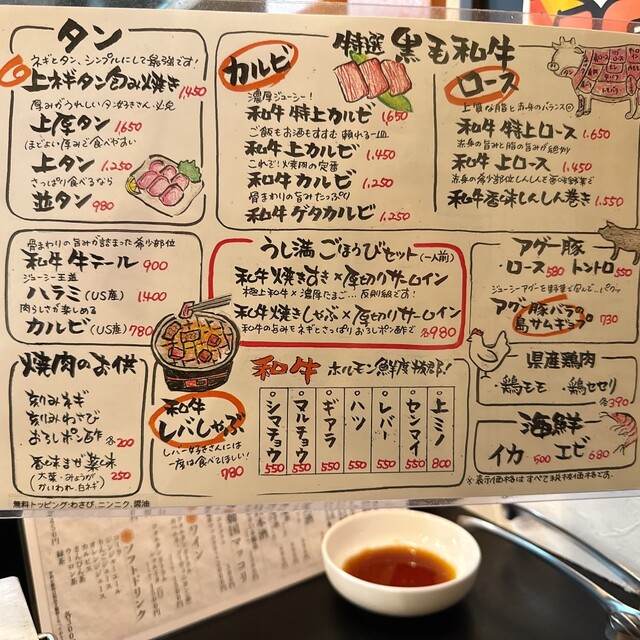 タン
ネギとタン、シンプルにして最強です!
上ネギタン包み焼き 1,450
厚みがうれしい タン好きさん必見
上厚タン 1,650
ほどよい厚みで食べやすい
上タン 1,250
さっぱり食べるなら
並タン 980
特選 黒毛和牛
カルビ
濃厚ジューシー!
和牛 特上カルビ 1,650
ご飯もお酒もすすむ 頼れる一皿
和牛 上カルビ 1,450
これぞ!焼肉の定番
和牛 カルビ 1,250
骨まわりの旨みたっぷり
和牛 ゲタカルビ 1,250
ロース
上質な脂と赤身のバランス◎
和牛 特上ロース 1,650
赤身の旨みと脂の旨みが絶妙
和牛 上ロース 1,450
赤身の希少部位しんしんを香味野菜で
和牛香味しんしん巻き 1,550
骨まわりの旨みが詰まった希少部位
和牛 牛ニール 900
ジューシー王道
ハラミ (US産) 1,400
肉らしさが楽しめる
カルビ (US産) 780
うし満 ごほうびセット (一人前)
和牛焼きすき×厚切りサーロイン
極上和牛×濃厚たまご…反則級です!
和牛焼きしゃぶ×厚切りサーロイン
和牛の旨みをネギとさっぱりおろしポン酢で 各980
アグー豚
ロース 580 トントロ 550
ジューシーアグーを野菜で包んで…パクッ
アグー豚バラの
島サムギョプ 730
県産鶏肉
・鶏モモ ・鶏セセリ
各390
海鮮
イカ 500 エビ 680
※表示価格はすべて税抜価格です。
焼肉のお供
刻みネギ
刻みわさび
おろしポン酢 各200
香味まぜ薬味 250
(大葉・みょうが
かいわれ、白ネギ)
和牛
レバしゃぶ
レバー好きさんには
一度は食べてほしい!
780
和牛 ホルモン鮮度抜群!
シマチョウ 550
マルチョウ 550
ギアラ 550
ハツ 550
レバー 550
センマイ 550
上ミノ 800
無料トッピング:わさび、ニンニク、醤油
ワイン
ソフトドリンク